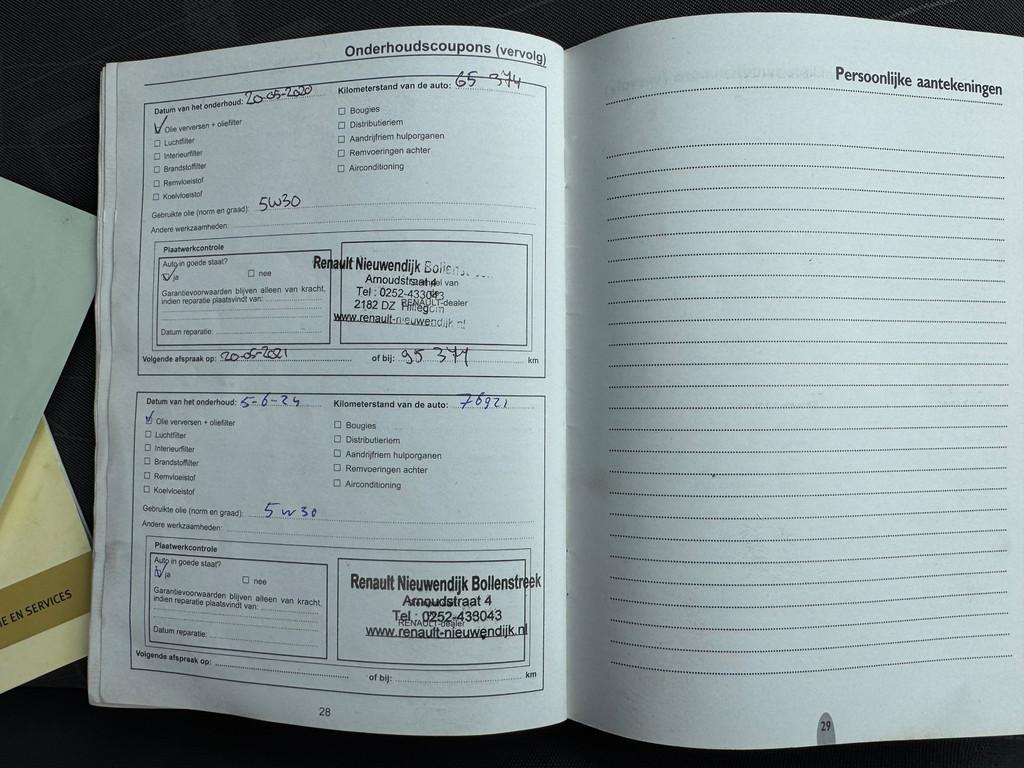 Onderhoudscoupons (vervolg)
Datum van het onderhoud: 20-05-2020 Kilometerstand van de auto: 65 374
Olie verversen + oliefilter
Luchtfilter
Interieurfilter
Brandstoffilter
Remvloeistof
Koelvloeistof
Bougies
Distributieriem
Aandrijfriem hulporganen
Remvoeringen achter
Airconditioning
Gebruikte olie (norm en graad): 5W30
Andere werkzaamheden:
Plaatwerkcontrole
Auto in goede staat?
ja nee
Garantievoorwaarden blijven alleen van kracht,
indien reparatie plaatsvindt van:
Datum reparatie:
Renault Nieuwendijk
Arnoudstraat 4
Tel : 0252-433043
RENAULT-dealer
2182 DZ Hillegom
www.renault-nieuwendijk.nl
Volgende afspraak op: 20-05-2021 of bij: 95 377 km
Datum van het onderhoud: 5-6-24 Kilometerstand van de auto: 76921
Olie verversen + oliefilter
Luchtfilter
Interieurfilter
Brandstoffilter
Remvloeistof
Koelvloeistof
Bougies
Distributieriem
Aandrijfriem hulporganen
Remvoeringen achter
Airconditioning
Gebruikte olie (norm en graad): 5w30
Andere werkzaamheden:
Plaatwerkcontrole
Auto in goede staat?
ja nee
Garantievoorwaarden blijven alleen van kracht,
indien reparatie plaatsvindt van:
Datum reparatie:
Renault Nieuwendijk Bollenstreek
Arnoudstraat 4
Tel : 0252-433043
RENAULT-dealer
www.renault-nieuwendijk.nl
Volgende afspraak op: of bij: km
28
Persoonlijke aantekeningen
29
EN SERVICES